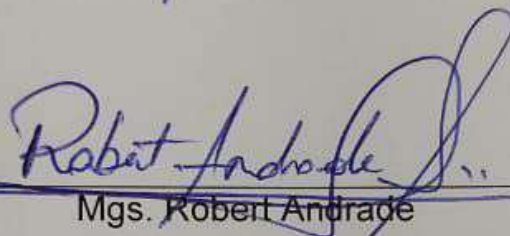 Robert Andrade
Mgs. Robert Andrade